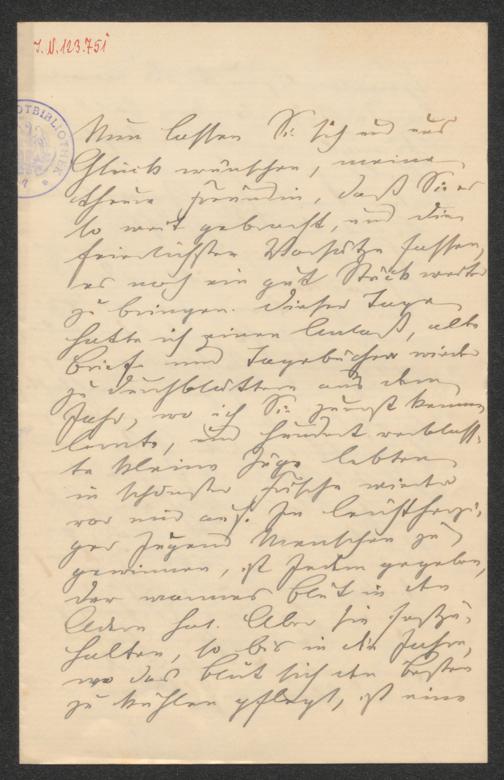 I. N. 123.751
Nun lassen Sie sich und uns
Glück wünschen, meine
theure Freundin, daß Sie es
so weit gebracht, und die
feierlichsten Vorsätze fassen,
es noch ein gut Stück weiter
zu bringen. Dieser Tage
hatte ich einen Anlaß, alte
Briefe und Tagebücher wieder
zu durchblättern aus dem
Jahr, wo ich Sie zuerst kennen
lernte, und hundert verblaß-
te kleine Züge lebten
in schönster Frische wieder
vor mir auf. In
ger Jugend Menschen zu
gewinnen, ist Jedem gegeben,
der warmes Blut in den
Adern hat. Aber sie festzu-
halten, so bis in die Jahre,
wo das Blut sich den Besten
zu kühlen pflegt, ist eine